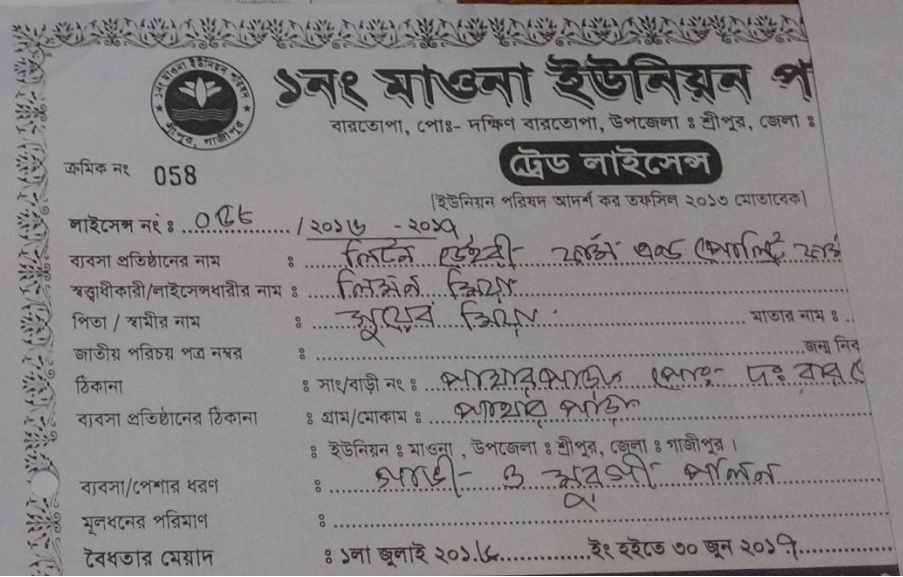 ১নং মাওনা ইউনিয়ন প
বারতোপা, পোঃ- দক্ষিণ বারতোপা, উপজেলা ঃ শ্রীপুর, জেলা ঃ
ক্রমিক নং 058
ট্রেড লাইসেন্স
[ইউনিয়ন পরিষদ আদর্শ কর তফসিল ২০১৩ মোতাবেক]
লাইসেন্স নং ঃ /২০১৬ -২০১৭
ব্যবসা প্রতিষ্ঠানের নাম ঃ লিটন ডেইরী ফার্ম এন্ড পোলট্রি ফার্ম
স্বত্ত্বাধীকারী/লাইসেন্সধারীর নাম ঃ মিয়া
পিতা / স্বামীর নাম ঃ মিয়া মাতার নাম ঃ
জাতীয় পরিচয় পত্র নম্বর ঃ জন্ম নিব
ঠিকানা ঃ সাং/বাড়ী নং ঃ পাথারপাড়া পোঃ- দঃ বার
ব্যবসা প্রতিষ্ঠানের ঠিকানা ঃ গ্রাম/মোকাম ঃ পাথার পাড়া
ঃ ইউনিয়ন ঃ মাওনা, উপজেলা ঃ শ্রীপুর, জেলা ঃ গাজীপুর।
ব্যবসা/পেশার ধরণ ঃ গাভী ও মুরগী পালন
মূলধনের পরিমাণ ঃ
বৈধতার মেয়াদ ঃ ১লা জুলাই ২০১৬ ইং হইতে ৩০ জুন ২০১৭